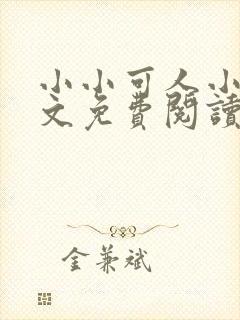 小小可人小
文免費閱讀
金兼斌